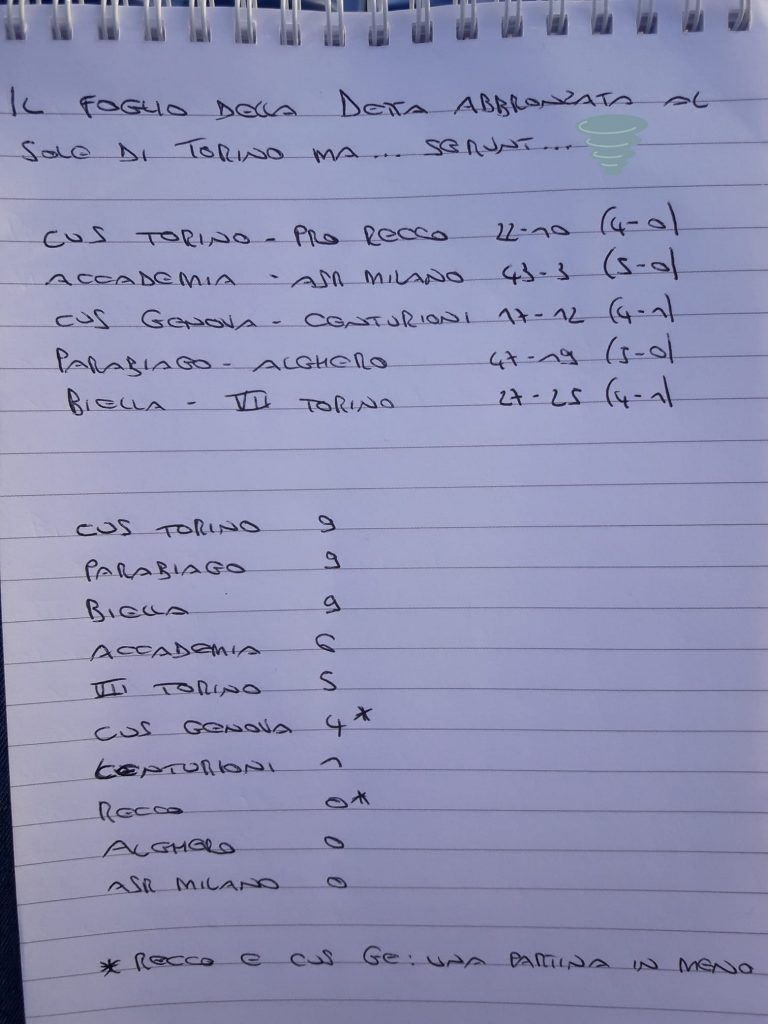 IL FOGLIO DELLA DETTA ABBRONZATA AL
SOLE DI TORINO MA... SERUNT...
CUS TORINO - PRO RECCO 22-10 (4-0)
ACCADEMIA - ASR MILANO 43-3 (5-0)
CUS GENOVA - CENTURIONI 17-12 (4-1)
PARABIAGO - ALGHERO 47-19 (5-0)
BIELLA - VII TORINO 27-25 (4-1)
CUS TORINO 9
PARABIAGO 9
BIELLA 9
ACCADEMIA 6
VII TORINO 5
CUS GENOVA 4*
CENTURIONI 1
RECCO 0*
ALGHERO 0
ASR MILANO 0
* RECCO E CUS GE: UNA PARTITA IN MENO